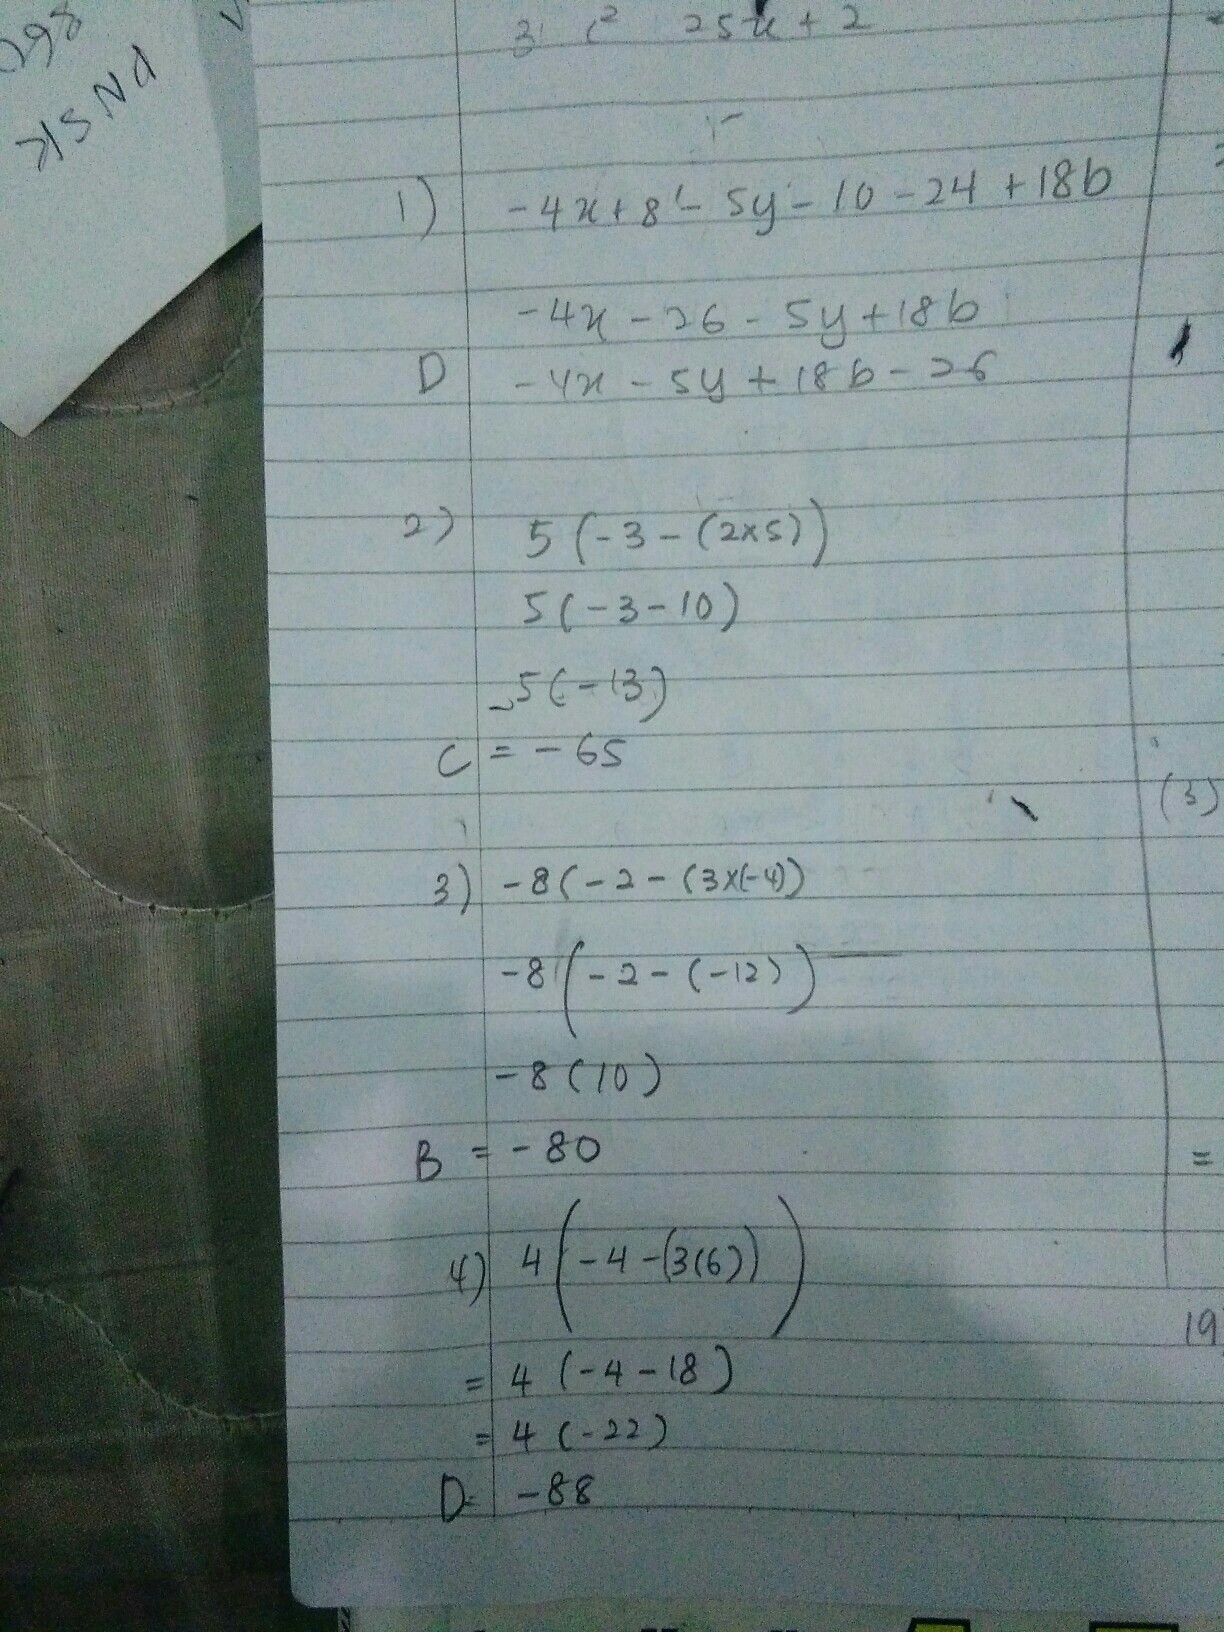 PNSK
25x + 2
1) -4x+8 - 5y - 10 - 24 + 18b
-4x - 26 - 5y + 18b
D -4x - 5y + 18b - 26
2) 5(-3-(2x5))
5(-3-10)
5(-13)
C = -65
(3)
3) -8(-2-(3x(-4))
-8(-2-(-12))
-8(10)
B = -80
=
4) 4(-4-(3(6))
19
= 4(-4-18)
= 4(-22)
D= -88